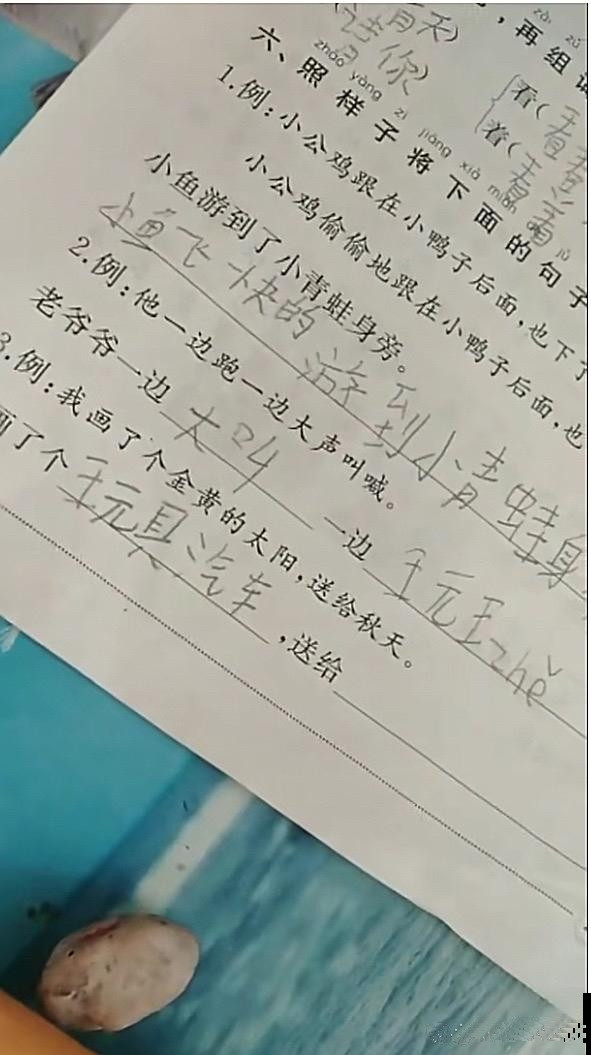 青天)
,再组词
zài zǔ
请(你)
看(
着(
zhào yàng zi jiāng xià miàn de jù
六、照样子将下面的句子
1.例:小公鸡跟在小鸭子后面,也下了
小公鸡偷偷地跟在小鸭子后面,也
小鱼游到了小青蛙身旁。
小鱼飞快的游到小青蛙身
2.例:他一边跑一边大声叫喊。
老爷爷一边大叫一边王元王zhě
3.例:我画了个金黄的太阳,送给秋天。
画了个王元具汽车,送给